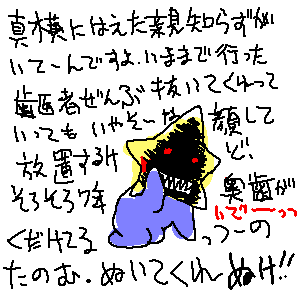 真横にはえた親知らずが
いて〜んですよ.いままで行った
歯医者ぜんぶ抜いてくれって
いってもいやそ〜な顔して
放置するけど、
そろそろ7年 奥歯が
くだけてるっつーの
いで〜〜っっ
たのむ.ぬいてくれーぬけ!!